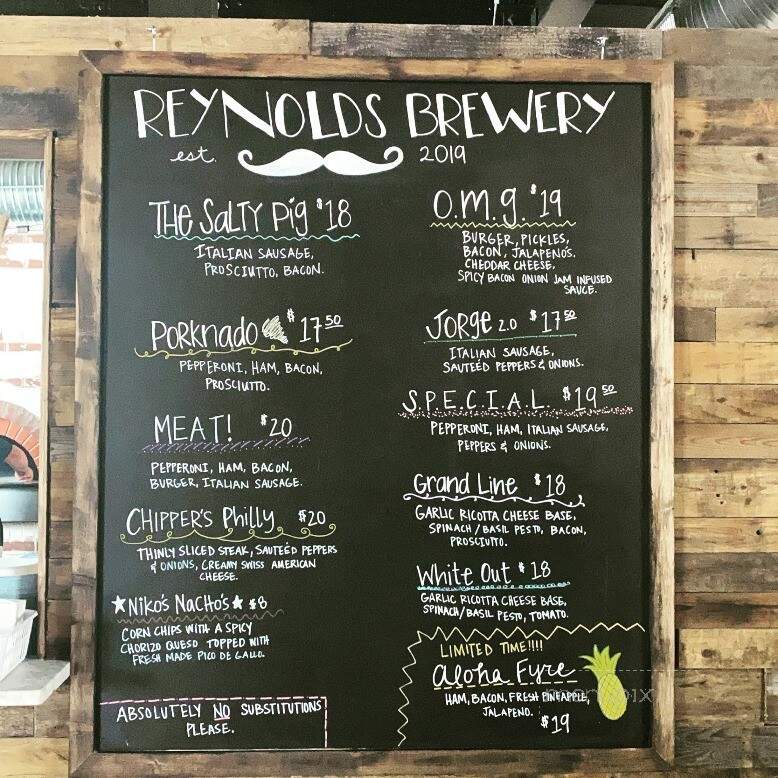 REYNOLDS BREWERY
est. 2019
THE SALTY PIG $18
ITALIAN SAUSAGE,
PROSCIUTTO, BACON.
PORKNADO $17.50
PEPPERONI, HAM, BACON,
PROSCIUTTO.
MEAT! $20
PEPPERONI, HAM, BACON,
BURGER, ITALIAN SAUSAGE.
CHIPPER'S PHILLY $20
THINLY SLICED STEAK, SAUTEÉD PEPPERS
& ONIONS, CREAMY SWISS AMERICAN
CHEESE.
★NIKO'S NACHO'S★ $8
CORN CHIPS WITH A SPICY
CHORIZO QUESO TOPPED WITH
FRESH MADE PICO DE GALLO.
ABSOLUTELY NO SUBSTITUTIONS
PLEASE.
O.M.G. $19
BURGER, PICKLES,
BACON, JALAPENOS.
CHEDDAR CHEESE,
SPICY BACON ONION JAM INFUSED
SAUCE.
JORGE 2.0 $17.50
ITALIAN SAUSAGE,
SAUTEÉD PEPPERS & ONIONS.
S.P.E.C.I.A.L. $19.50
PEPPERONI, HAM, ITALIAN SAUSAGE,
PEPPERS & ONIONS.
Grand Line $18
GARLIC RICOTTA CHEESE BASE,
SPINACH / BASIL PESTO, BACON,
PROSCIUTTO.
White Out $18
GARLIC RICOTTA CHEESE BASE,
SPINACH/BASIL PESTO, TOMATO.
LIMITED TIME!!!!
Aloha Fyre
HAM, BACON, FRESH PINEAPPLE,
JALAPENO.
$19